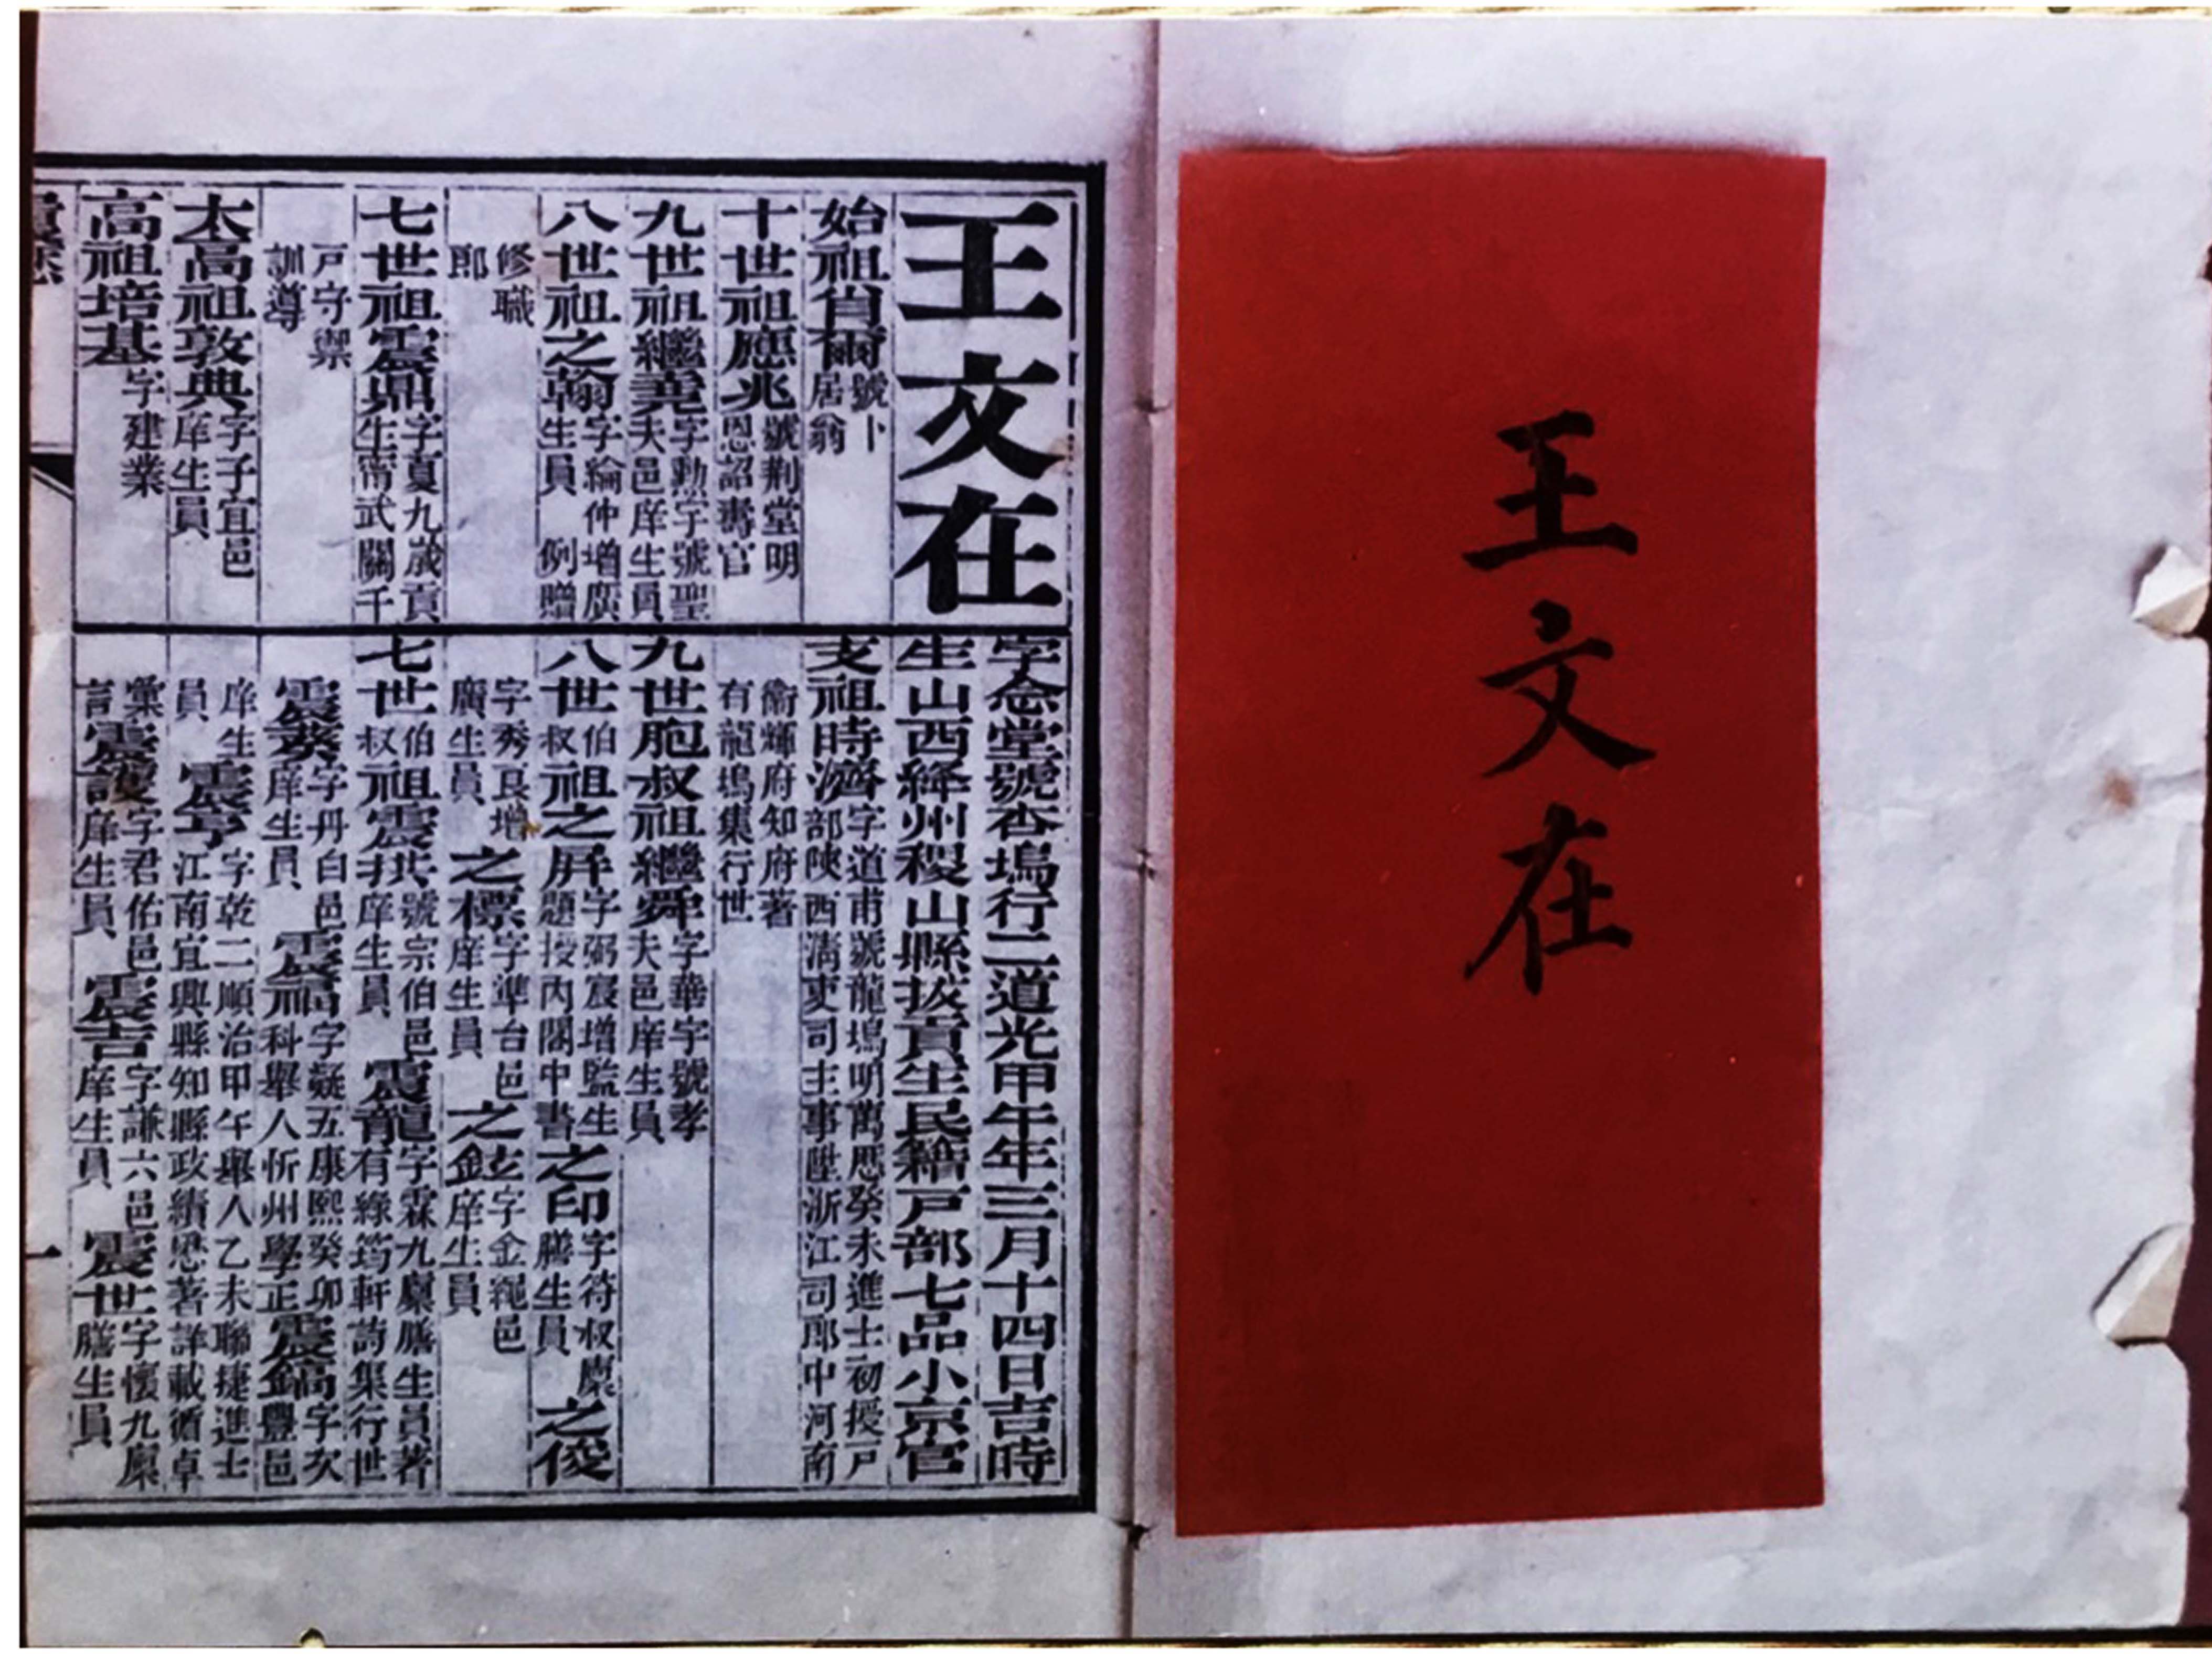 王文在
王文在
字念堂號杏塢行二道光甲午年三月十四日吉時
生山西絳州稷山縣拔貢生民籍戶部七品小京官
始祖肖爾號卜
居翁
十世祖應兆號荆堂明
恩詔壽官
九世祖繼堯字勲宇號聖
夫邑庠生員
八世祖之翰字綸仲增廣
生員 例贈
修職
郎
七世祖震鼎字夏九歲貢
生甯武關千
戶守禦
訓導
太高祖敦典字子宜邑
庠生員
高祖培基字建業
支祖時濟字道甫號龍塢明萬厯癸未進士初授戶
部陝西清吏司主事陞浙江司郎中河南
衛輝府知府著
有龍塢集行世
九世胞叔祖繼舜字華宇號孝
夫邑庠生員
八世伯叔祖之屏字弼宸增監生
題授內閣中書
之印字符叔廪
膳生員
之俊
字秀民增
廣生員
之標字準台邑
庠生員
之鉉字金繩邑
庠生員
七世伯叔祖震共號宗伯邑
庠生員
震龍字霖九廪膳生員著
有綠筠軒詩集行世
震葵字丹白邑
庠生員
震福字疑五康熙癸卯
科舉人忻州學正
震鎬字次
豐邑
庠生
員
震亨字乾二順治甲午舉人乙未聯捷進士
江南宜興縣知縣政績懋著詳載循卓
彙
言
震護字君佑邑
庠生員
震吉字謙六邑
庠生員
震世字懷九廪
膳生員
一